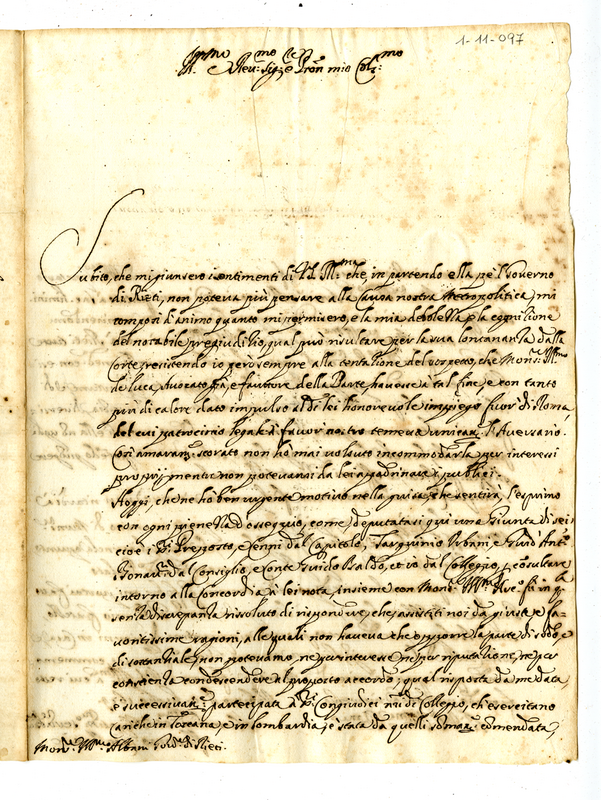 1-11-097
Ill.mo e Rev.mo Sig.re e Pron mio Col.mo
Subito, che mi giunsero i sentimenti di V.S. Ill.ma che, in partendo ella pe'l Governo
di Rieti, non poteva più pensare alla Causa nostra Metropolitica, mi
composi d'animo quanto mi permisero, e la mia debolezza, e la cognitione
del notabile pregiuditio, qual può risultare per la sua lontananza dalla
Corte, resistendo io però sempre alla tentatione del sospetto, che Mons.r Ill.mo
de luca, Avvocato, e fauttore della Parte, havesse a tal fine, e con tanto
più di calore dato impulso al di lei honorevole impiego fuor di Roma,
del cui patrocinio legale à favor nostro temeva l'Aversario.
Così amaram.te scorato non hò mai voluto incommodarla per interessi
proprij mentre non potevansi da lei apadrinare i publici.
Hoggi, che ne hò ben urgente motivo nella guisa, che sentirà, l'esprimo
con ogni pienezza d'ossequio, come deputatasi quì una Giunta di sei,
cioè i SS.i Preposto, e Cenni dal Capitolo, Tarquinio Urbani, e Ant.o
Bonav.a dal Consiglio, e Conte Guido Staldo, et io dal Collegio, p consultare
intorno alla Concordia à lei nota, insieme con Mons.r Ill.mo
senza discrepanza rissoluto di rispondere, che assistiti noi da giuste, e fa-
voritissime ragioni, alle quali non haveva che opporre la parte di sodo, e
di sostantiale, non potevamo, ne per interesse, ne per riputatione, ne per
conscienza condescendere al proposto accordo; qual risposta da me data,
e successivam.te partecipata à SS.i Congiudici nri di Collegio, ch'esercitano
anche in Toscana, e in Lombardia, è stata da quelli som.te comendata,
Mons.r Ill.mo Albani Gov.re di Rieti.